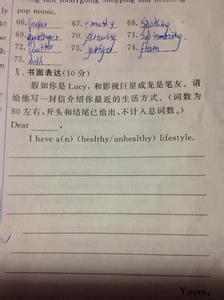 pop music.
66. 67. 68.
69. 70. drawing 71. swimming
72. better 73. 74. from
75. both
X. 书面表达(10分)
假如你是 Lucy，和影视巨星成龙是笔友。请
给他写一封信介绍你最近的生活方式。(词数为
80 左右，开头和结尾已给出，不计入总词数。)
Dear ______,
I have a(n) (healthy/unhealthy) lifestyle.
Yours,